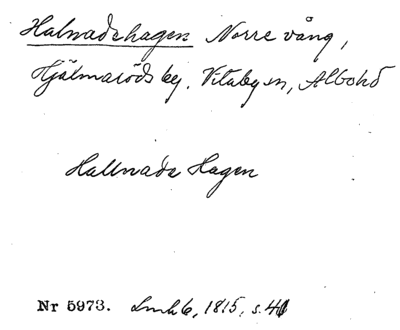 Halnadshagen Norre vång,
Hjälmaröds by. Vitaby sn, Albo hd
Hallnads Hagen
Nr 5973. Lmh 6, 1815, s. 41